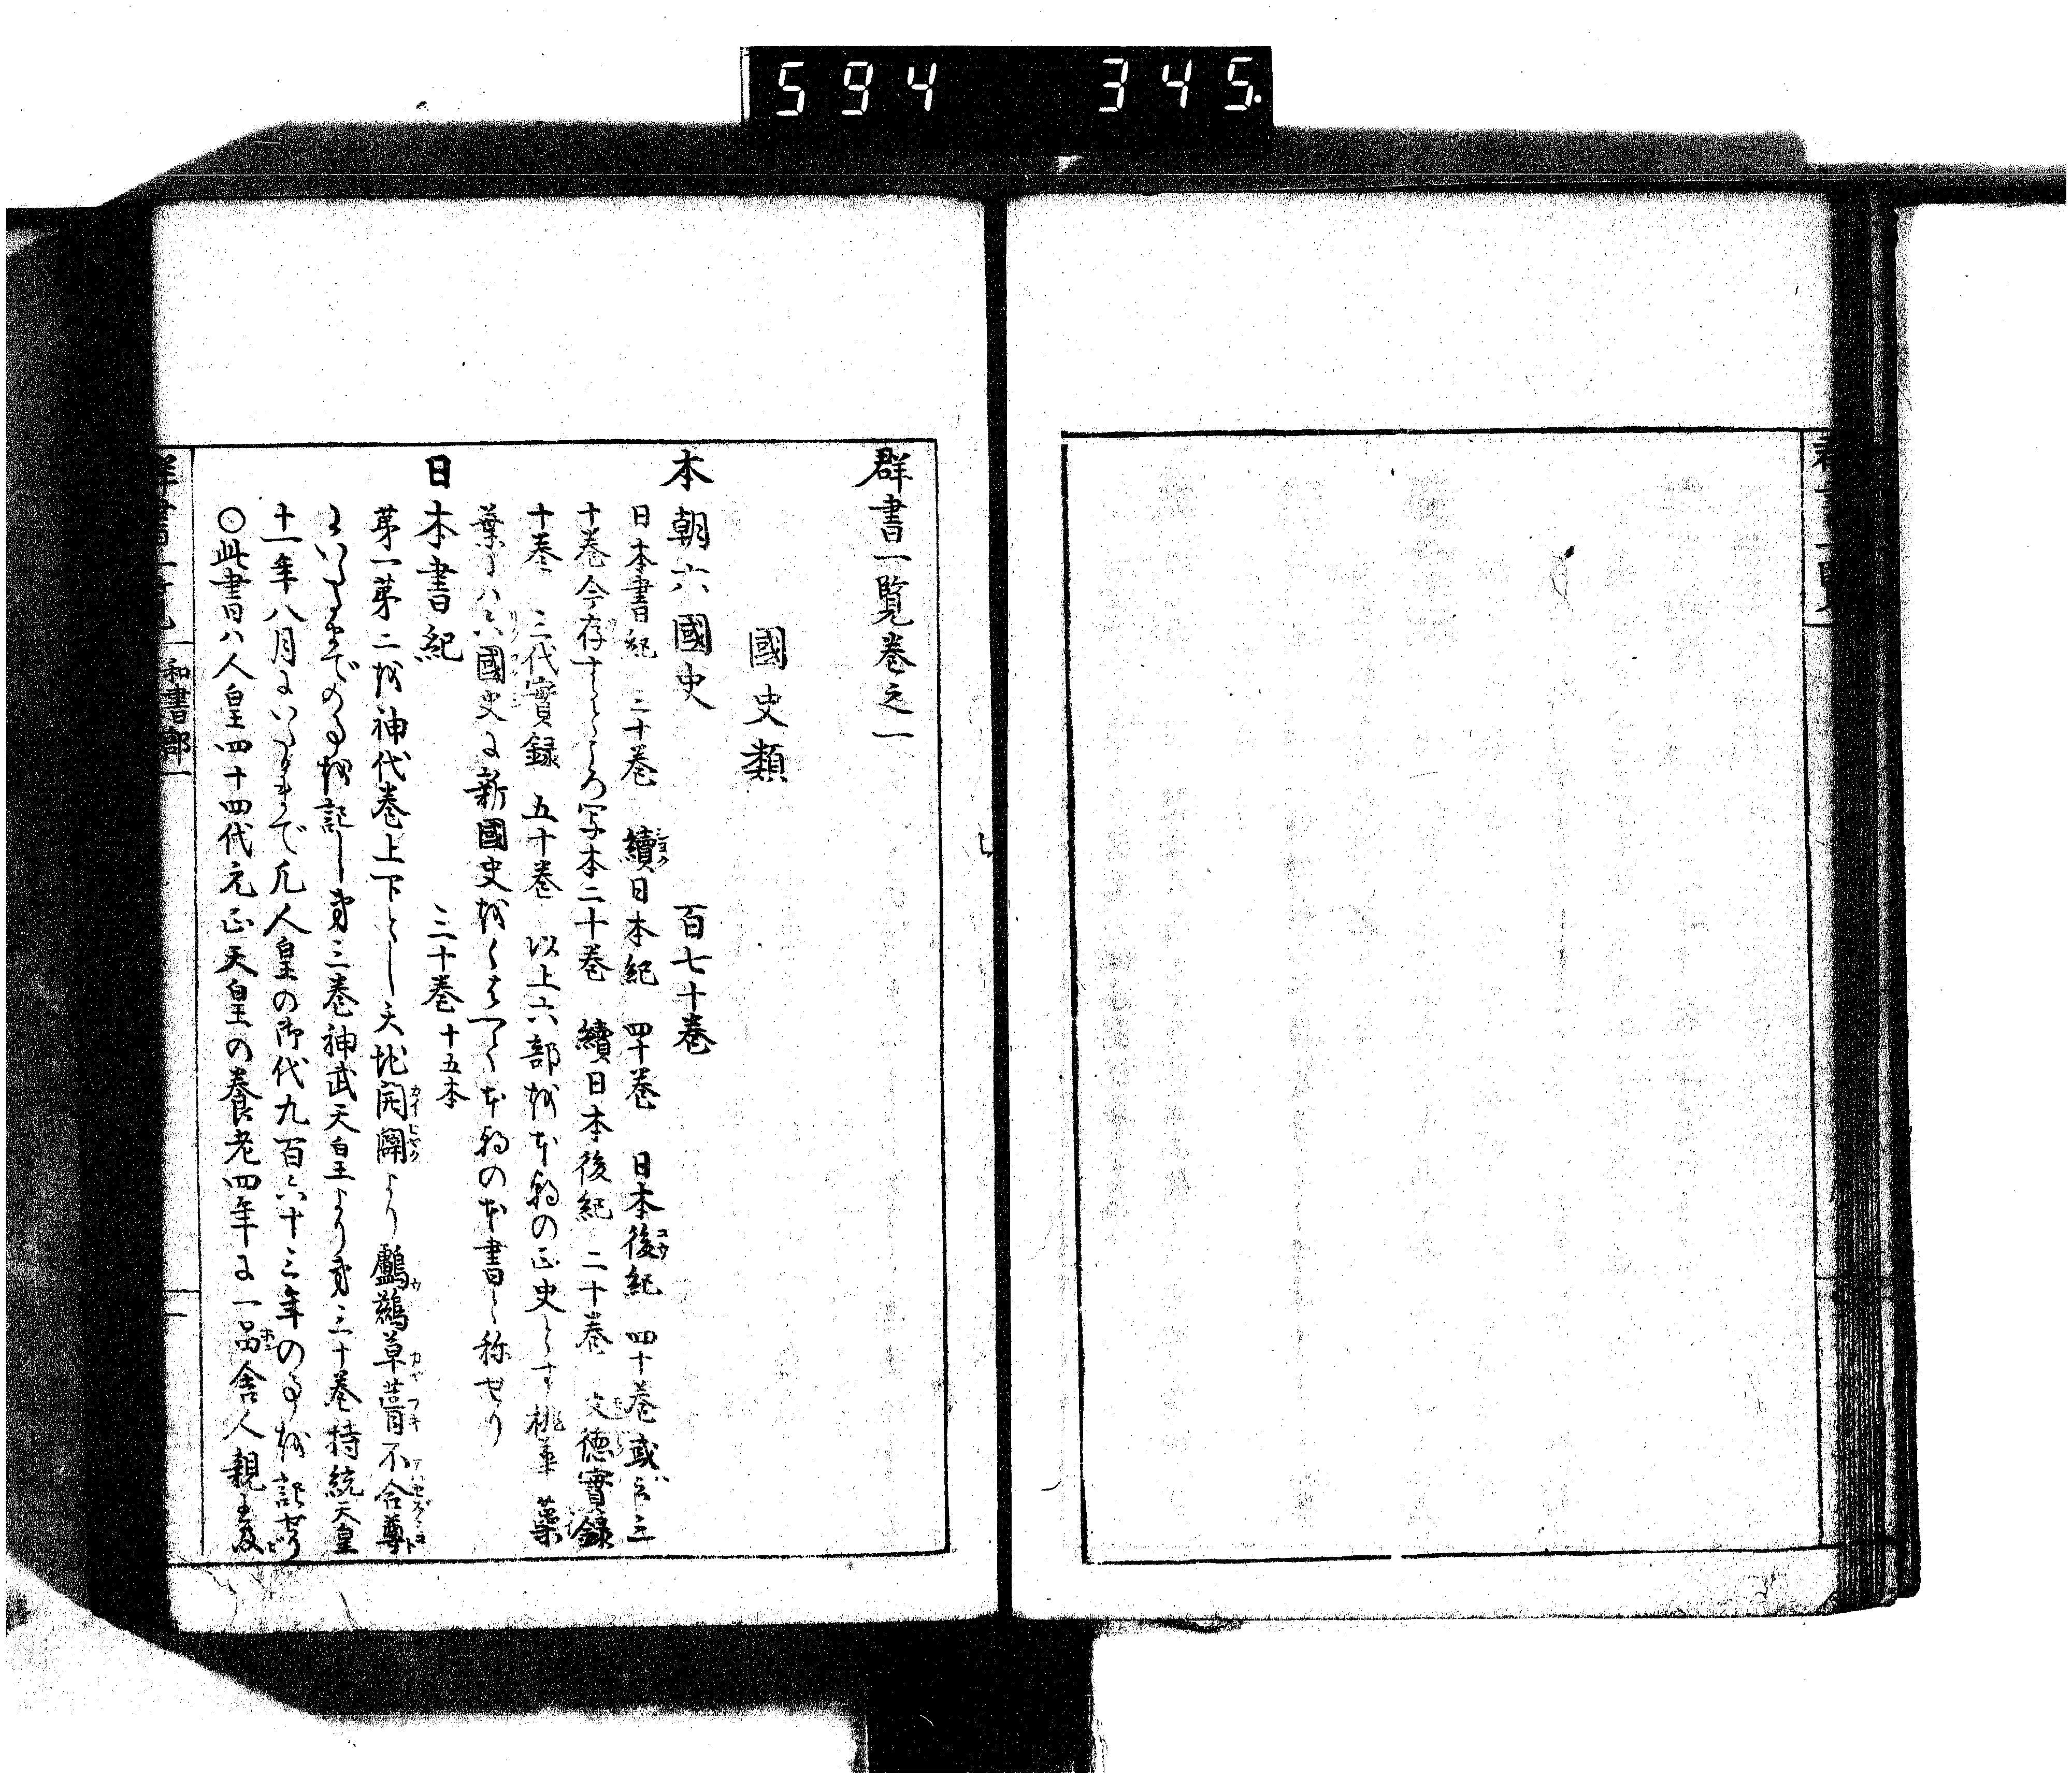 594 345
群書一覧巻之一
國史類
本朝六國史 百七十巻
日本書紀 三十巻 續日本紀 四十巻 日本後紀 四十巻或ハ云三
十巻今存するところ写本二十巻 續日本後紀 二十巻 文徳實録
十巻 三代實録 五十巻 以上六部を本朝の正史とす桃華蘂
葉にハ六國史に新國史をくはへて本朝の本書と称せり
日本書紀 三十巻十五本
第一第二を神代巻上下とし天地開闢より鸕鷀草葺不合尊
にいたるまでの事を記し第三巻神武天皇より第三十巻持統天皇
十一年八月にいたるまで凡人皇の御代九百六十三年の事を記せり
〇此書ハ人皇四十四代元正天皇の養老四年に一品舎人親王及
群書一覧 和書部 一